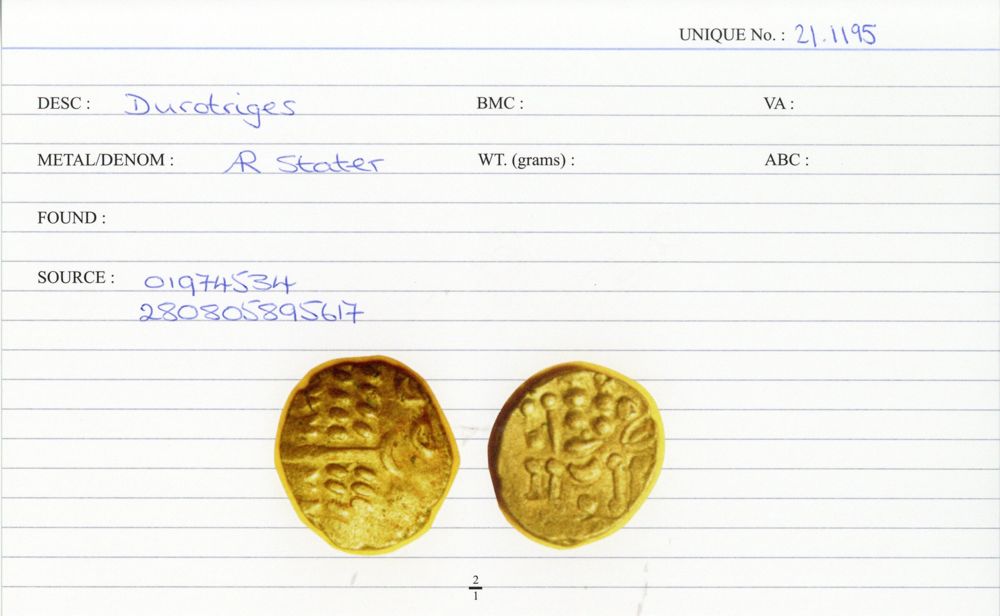 UNIQUE No. : 21.1195
DESC : Durotriges BMC : VA :
METAL/DENOM : AR Stater WT. (grams) : ABC :
FOUND :
SOURCE : 01974534
280805895617
2
1